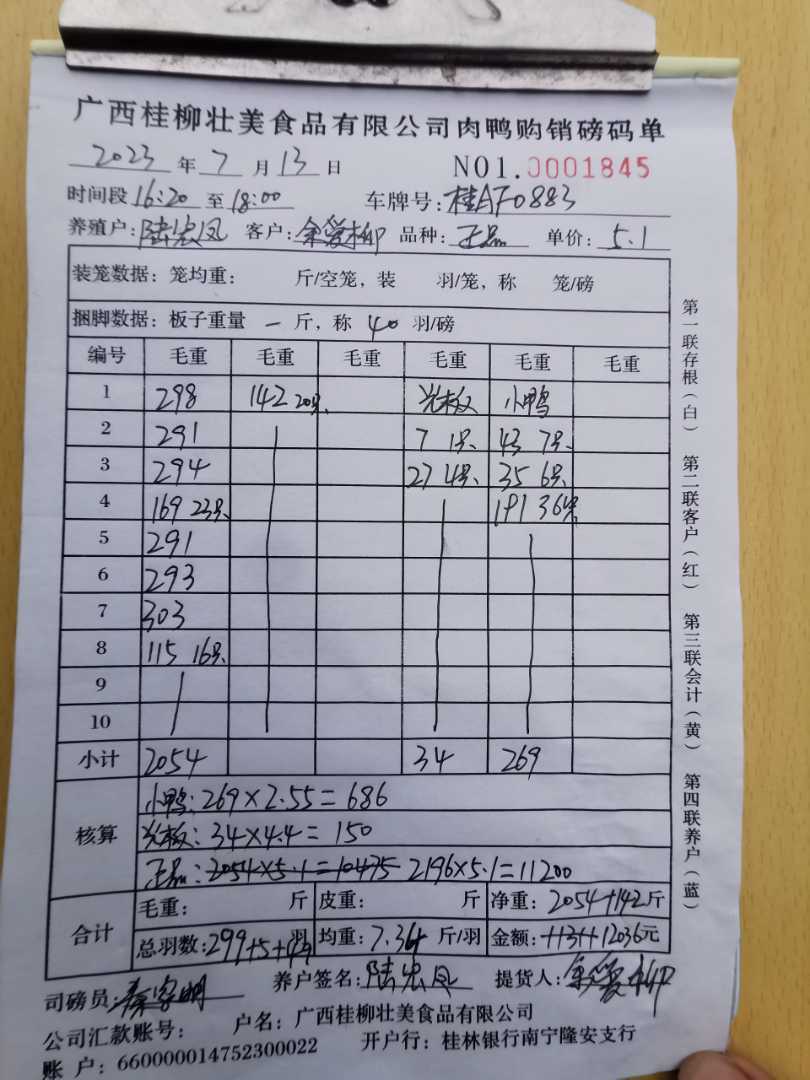 广西桂柳壮美食品有限公司肉鸭购销磅码单
2023 年 7 月 13 日 NO1.0001845
时间段 16:20 至 18:00 车牌号: 桂AF0883
养殖户: 陆宏凤 客户: 余爱柳 品种: 正品 单价: 5.1
装笼数据: 笼均重: 斤/空笼, 装 羽/笼, 称 笼/磅
捆脚数据: 板子重量 一 斤, 称 40 羽/磅
编号 毛重 毛重 毛重 毛重 毛重 毛重
1 298 142 20只 光板 小鸭
2 291 7 1只 43 7只
3 294 27 4只 35 6只
4 169 23只 191 36只
5 291
6 293
7 303
8 115 16只
9
10
小计 2054 34 269
核算
小鸭: 269×2.55=686
光板: 34×4.4=150
正品: 2054×5.1=10475 2196×5.1=11200
合计
毛重: 斤 皮重: 斤 净重: 2054+142斤
总羽数: 299+5+49 羽 均重: 7.34 斤/羽 金额: 11311 12036元
司磅员: 养户签名: 陆宏凤 提货人: 余爱柳
公司汇款账号: 户名: 广西桂柳壮美食品有限公司
账 户: 660000014752300022 开户行: 桂林银行南宁隆安支行
第一联存根(白) 第二联客户(红) 第三联会计(黄) 第四联养户(蓝)